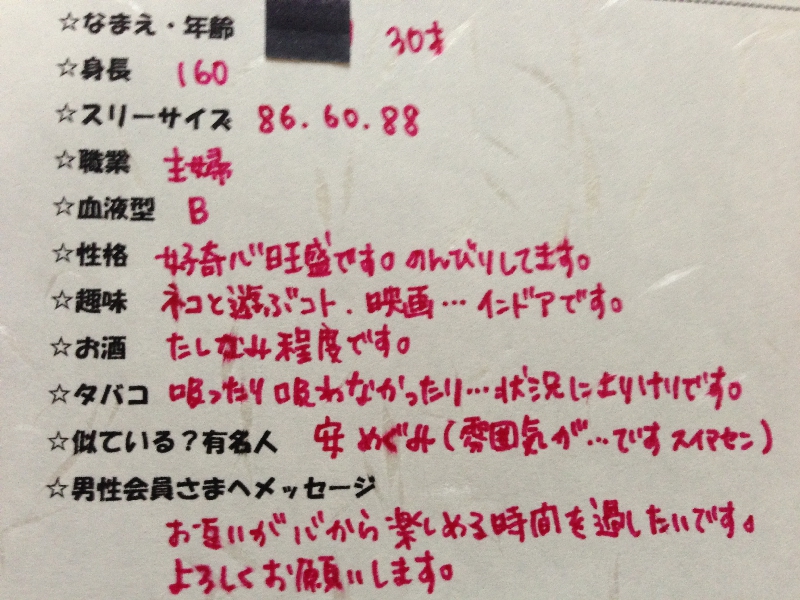 ☆なまえ・年齢 30才
☆身長 160
☆スリーサイズ 86.60.88
☆職業 主婦
☆血液型 B
☆性格 好奇心旺盛です。のんびりしてます。
☆趣味 ネコと遊ぶコト、映画…インドアです。
☆お酒 たしなみ程度です。
☆タバコ 吸ったり吸わなかったり…状況によりけりです。
☆似ている?有名人 安めぐみ(雰囲気が…ですスイマセン)
☆男性会員さまへメッセージ
お互いが心から楽しめる時間を過したいです。
よろしくお願いします。